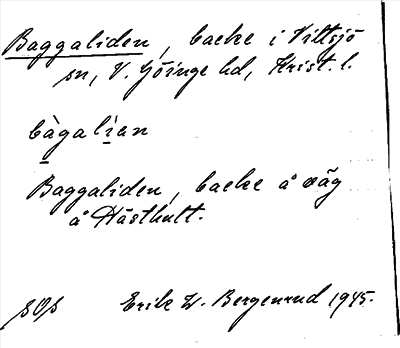 Baggaliden, backe i Vittsjö
sn, V. Göinge hd, Krist. l.
bàgalían
Baggaliden, backe å väg
å Hästhult.
Erik W. Bergenrud 1945.